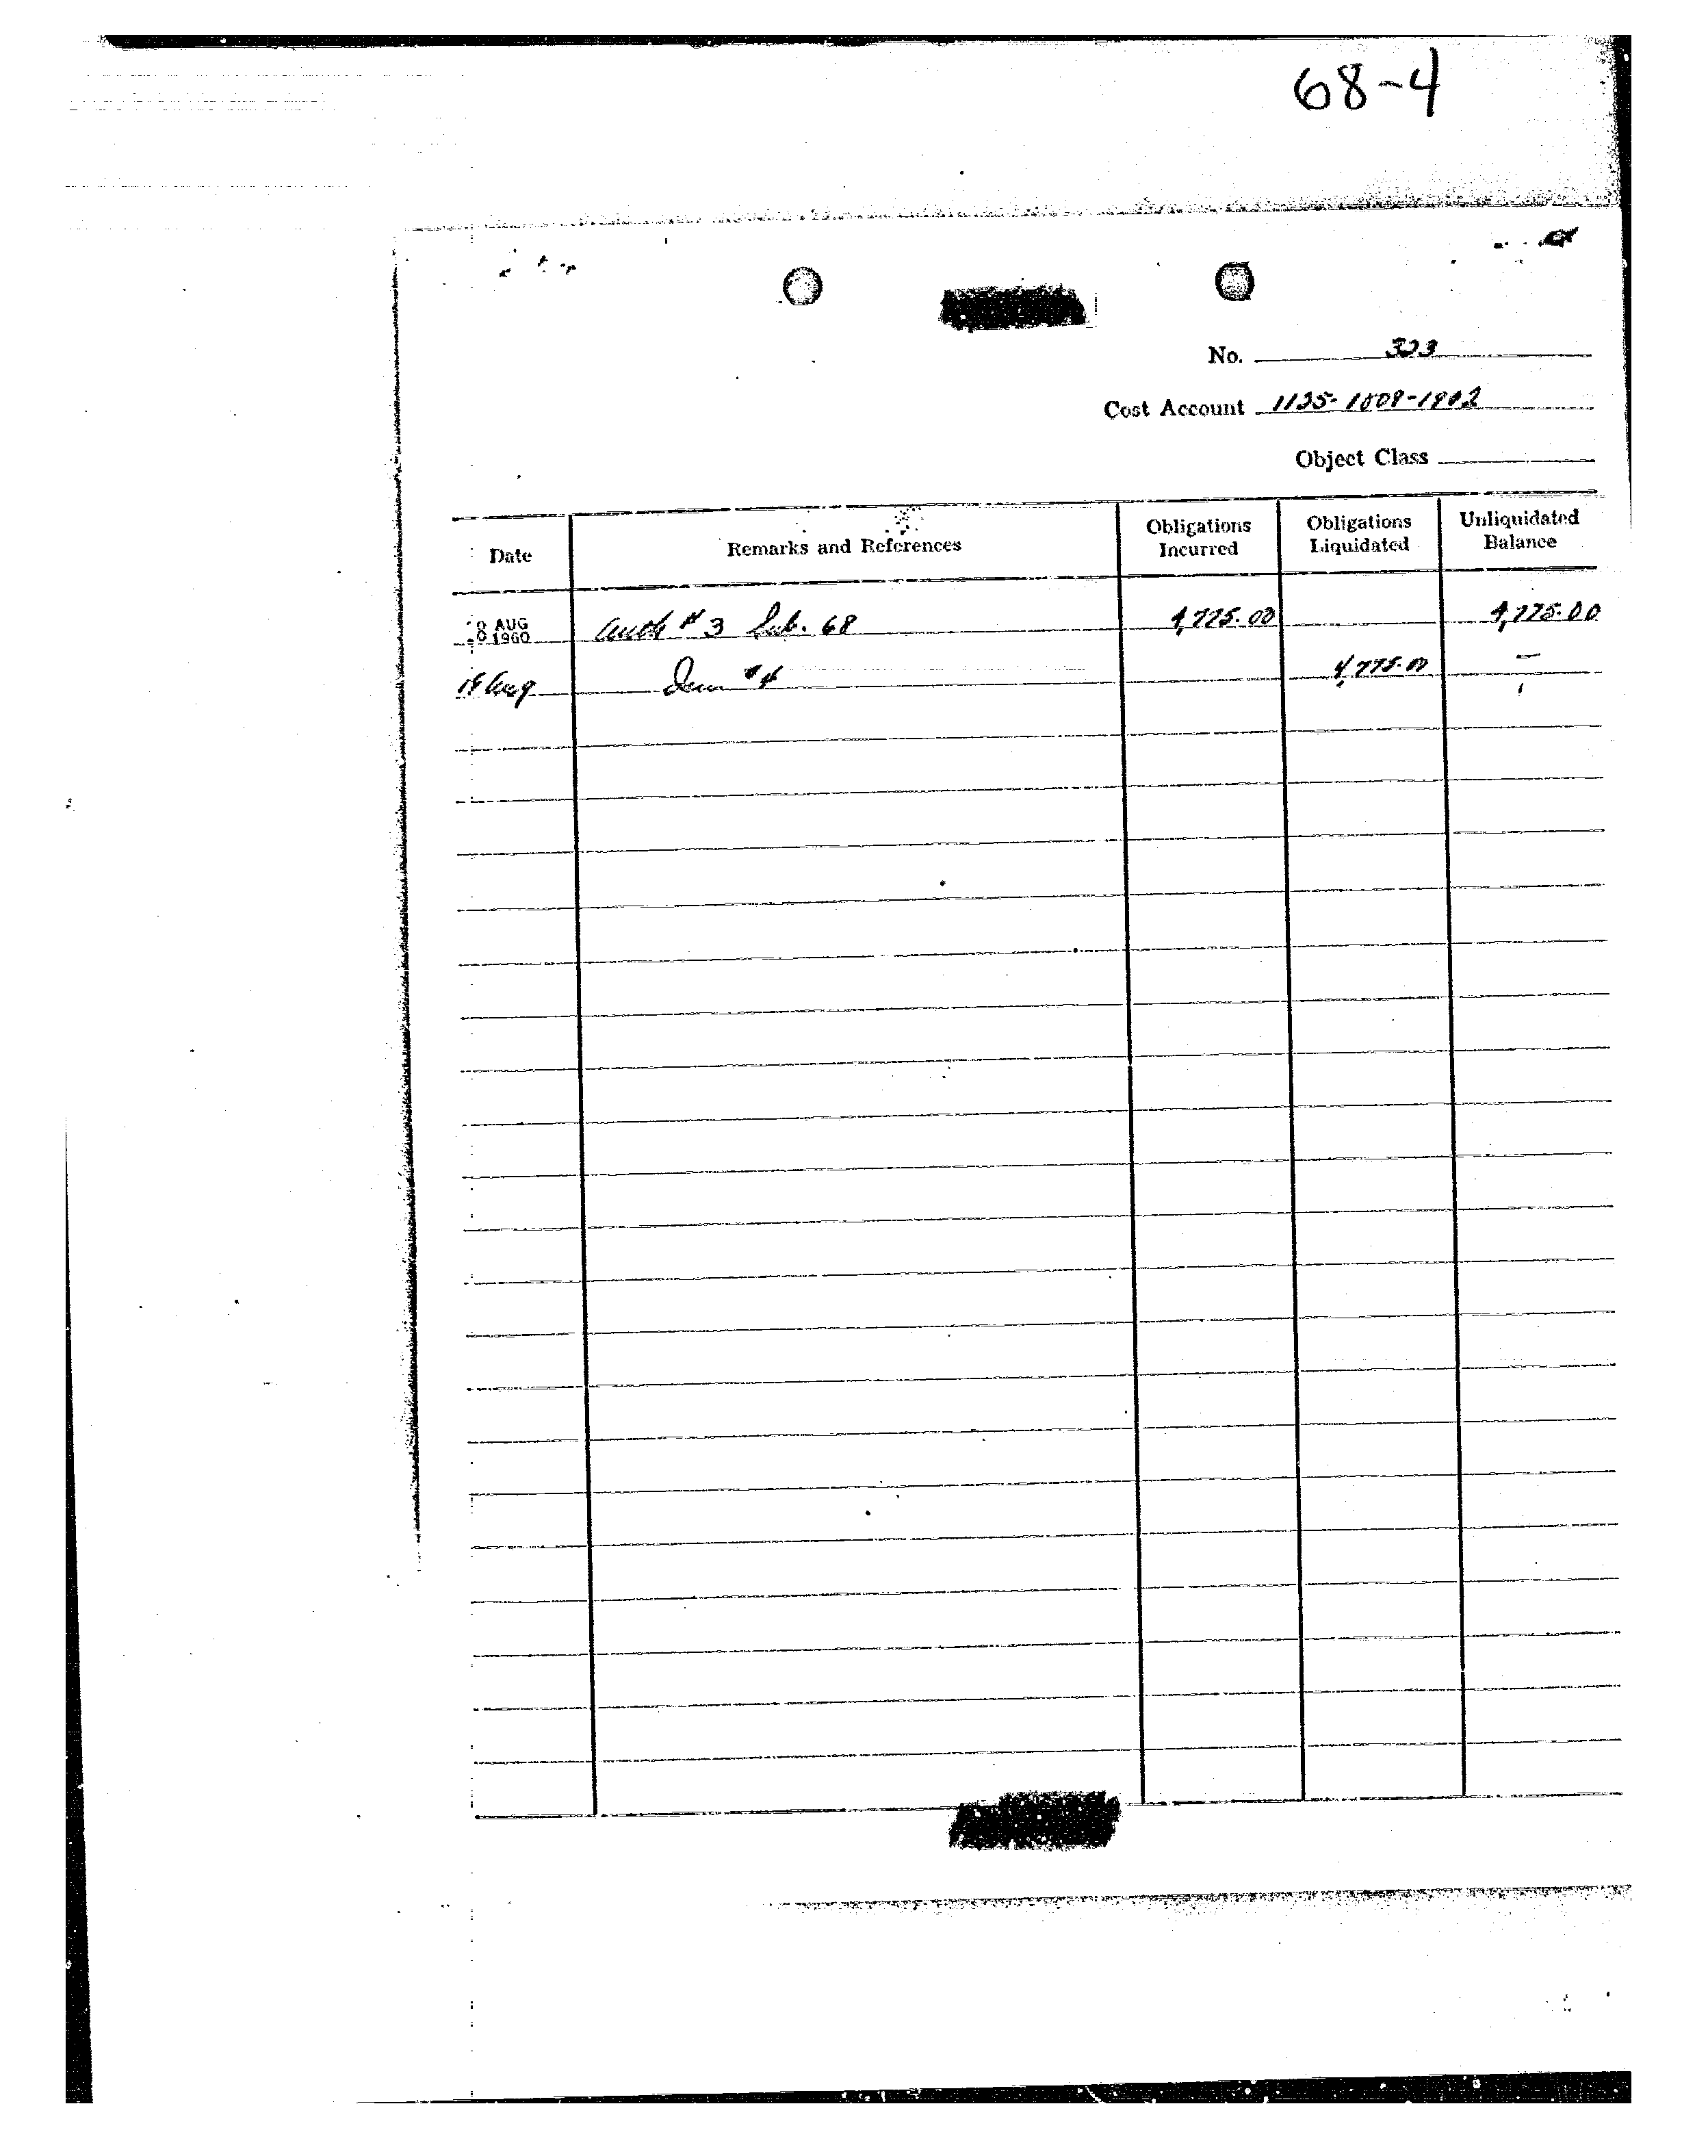 68-4
No. 323
Cost Account 1125-1009-1902
Object Class
Date
Remarks and References
Obligations Incurred
Obligations Liquidated
Unliquidated Balance
8 AUG 1960 Auth # 3 Sub. 68 4,775.00 4,775.00
19 Aug #4 4,775.00 —